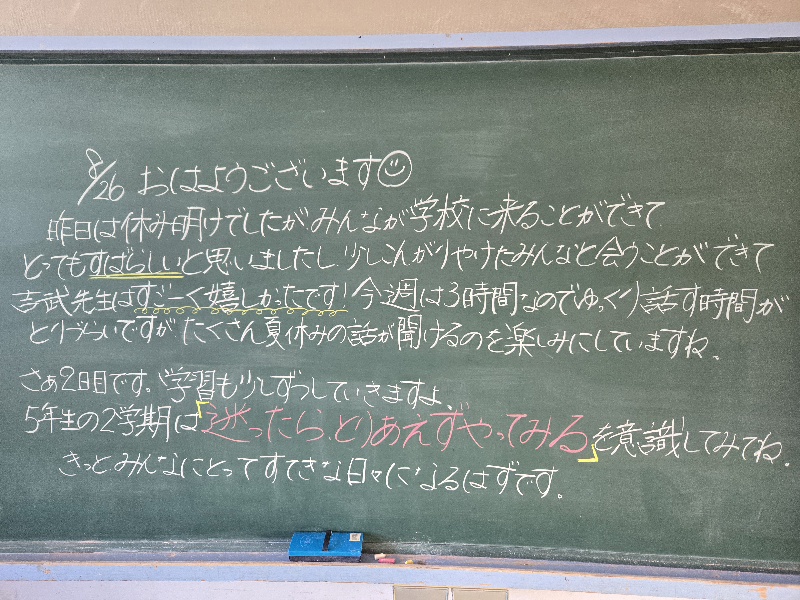 8/26 おはようございます
昨日は休み明けでしたが、みんなが学校に来ることができて
とってもすばらしいと思いましたし、少しこんがりやけたみんなと会うことができて
吉武先生はすごーく嬉しかったです!今週は3時間なのでゆっくり話す時間が
とりづらいですが、たくさん夏休みの話が聞けるのを楽しみにしていますね。
さぁ2日目です。学習も少しずつしていきますよ。
5年生の2学期は「迷ったら、とりあえずやってみる」を意識してみてね。
きっとみんなにとってすてきな日々になるはずです。